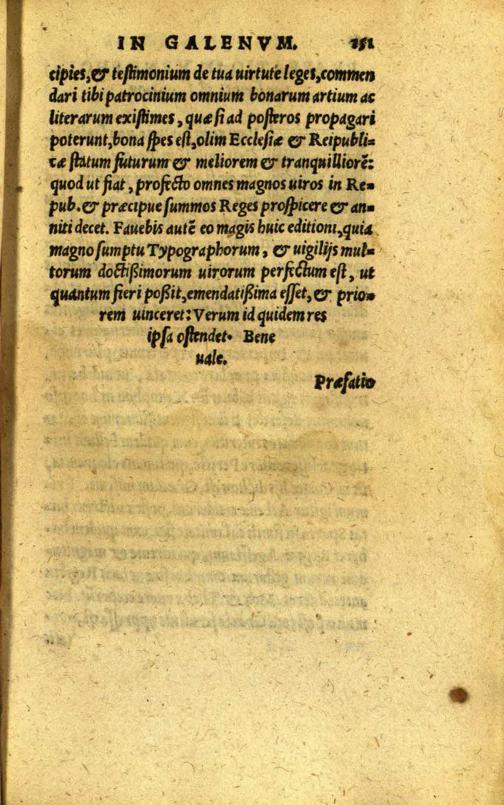 IN GALENVM. 151
cipies,& testimonium de tua uirtute leges,commen
dari tibi patrocinium omnium bonarum artium ac
literarum existimes, quæ si ad posteros propagari
poterunt,bona spes est,olim Ecclesiæ & Reipubli=
cæ statum futurum & meliorem & tranquilliorē:
quod ut fiat, profecto omnes magnos uiros in Re=
pub.& præcipue summos Reges prospicere & an=
niti decet. Fauebis autē eo magis huic editioni,quia
magno sumptu Typographorum, & uigilijs mul=
torum doctißimorum uirorum perfectum est, ut
quantum fieri poßit,emendatißima esset,& prio=
rem uinceret: Verum id quidem res
ipsa ostendet. Bene
uale.
Præfatio